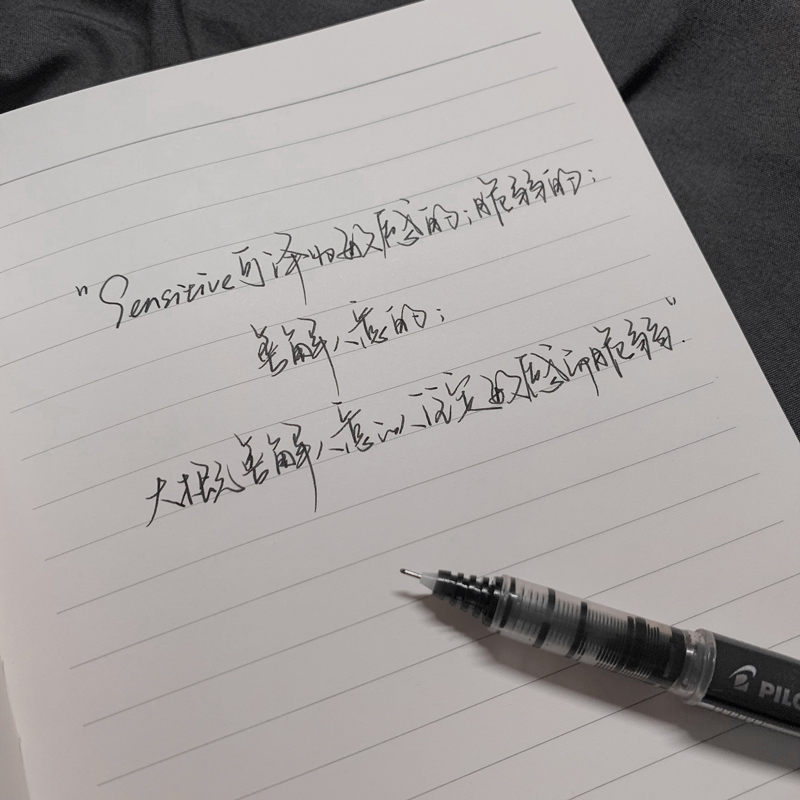 "Sensitive可译为敏感的;脆弱的;
善解人意的;
大概善解人意以后定敏感而脆弱".
PILO